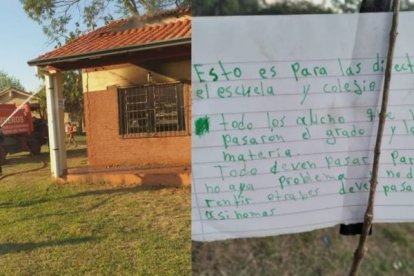 BEROS
Esto es para las direct
el escuela y colegio
todo los alucho que
pasaron el grado y l
materia.
Todo deven pasar Par
no aya problema no d
rentir otsaber deve pasa